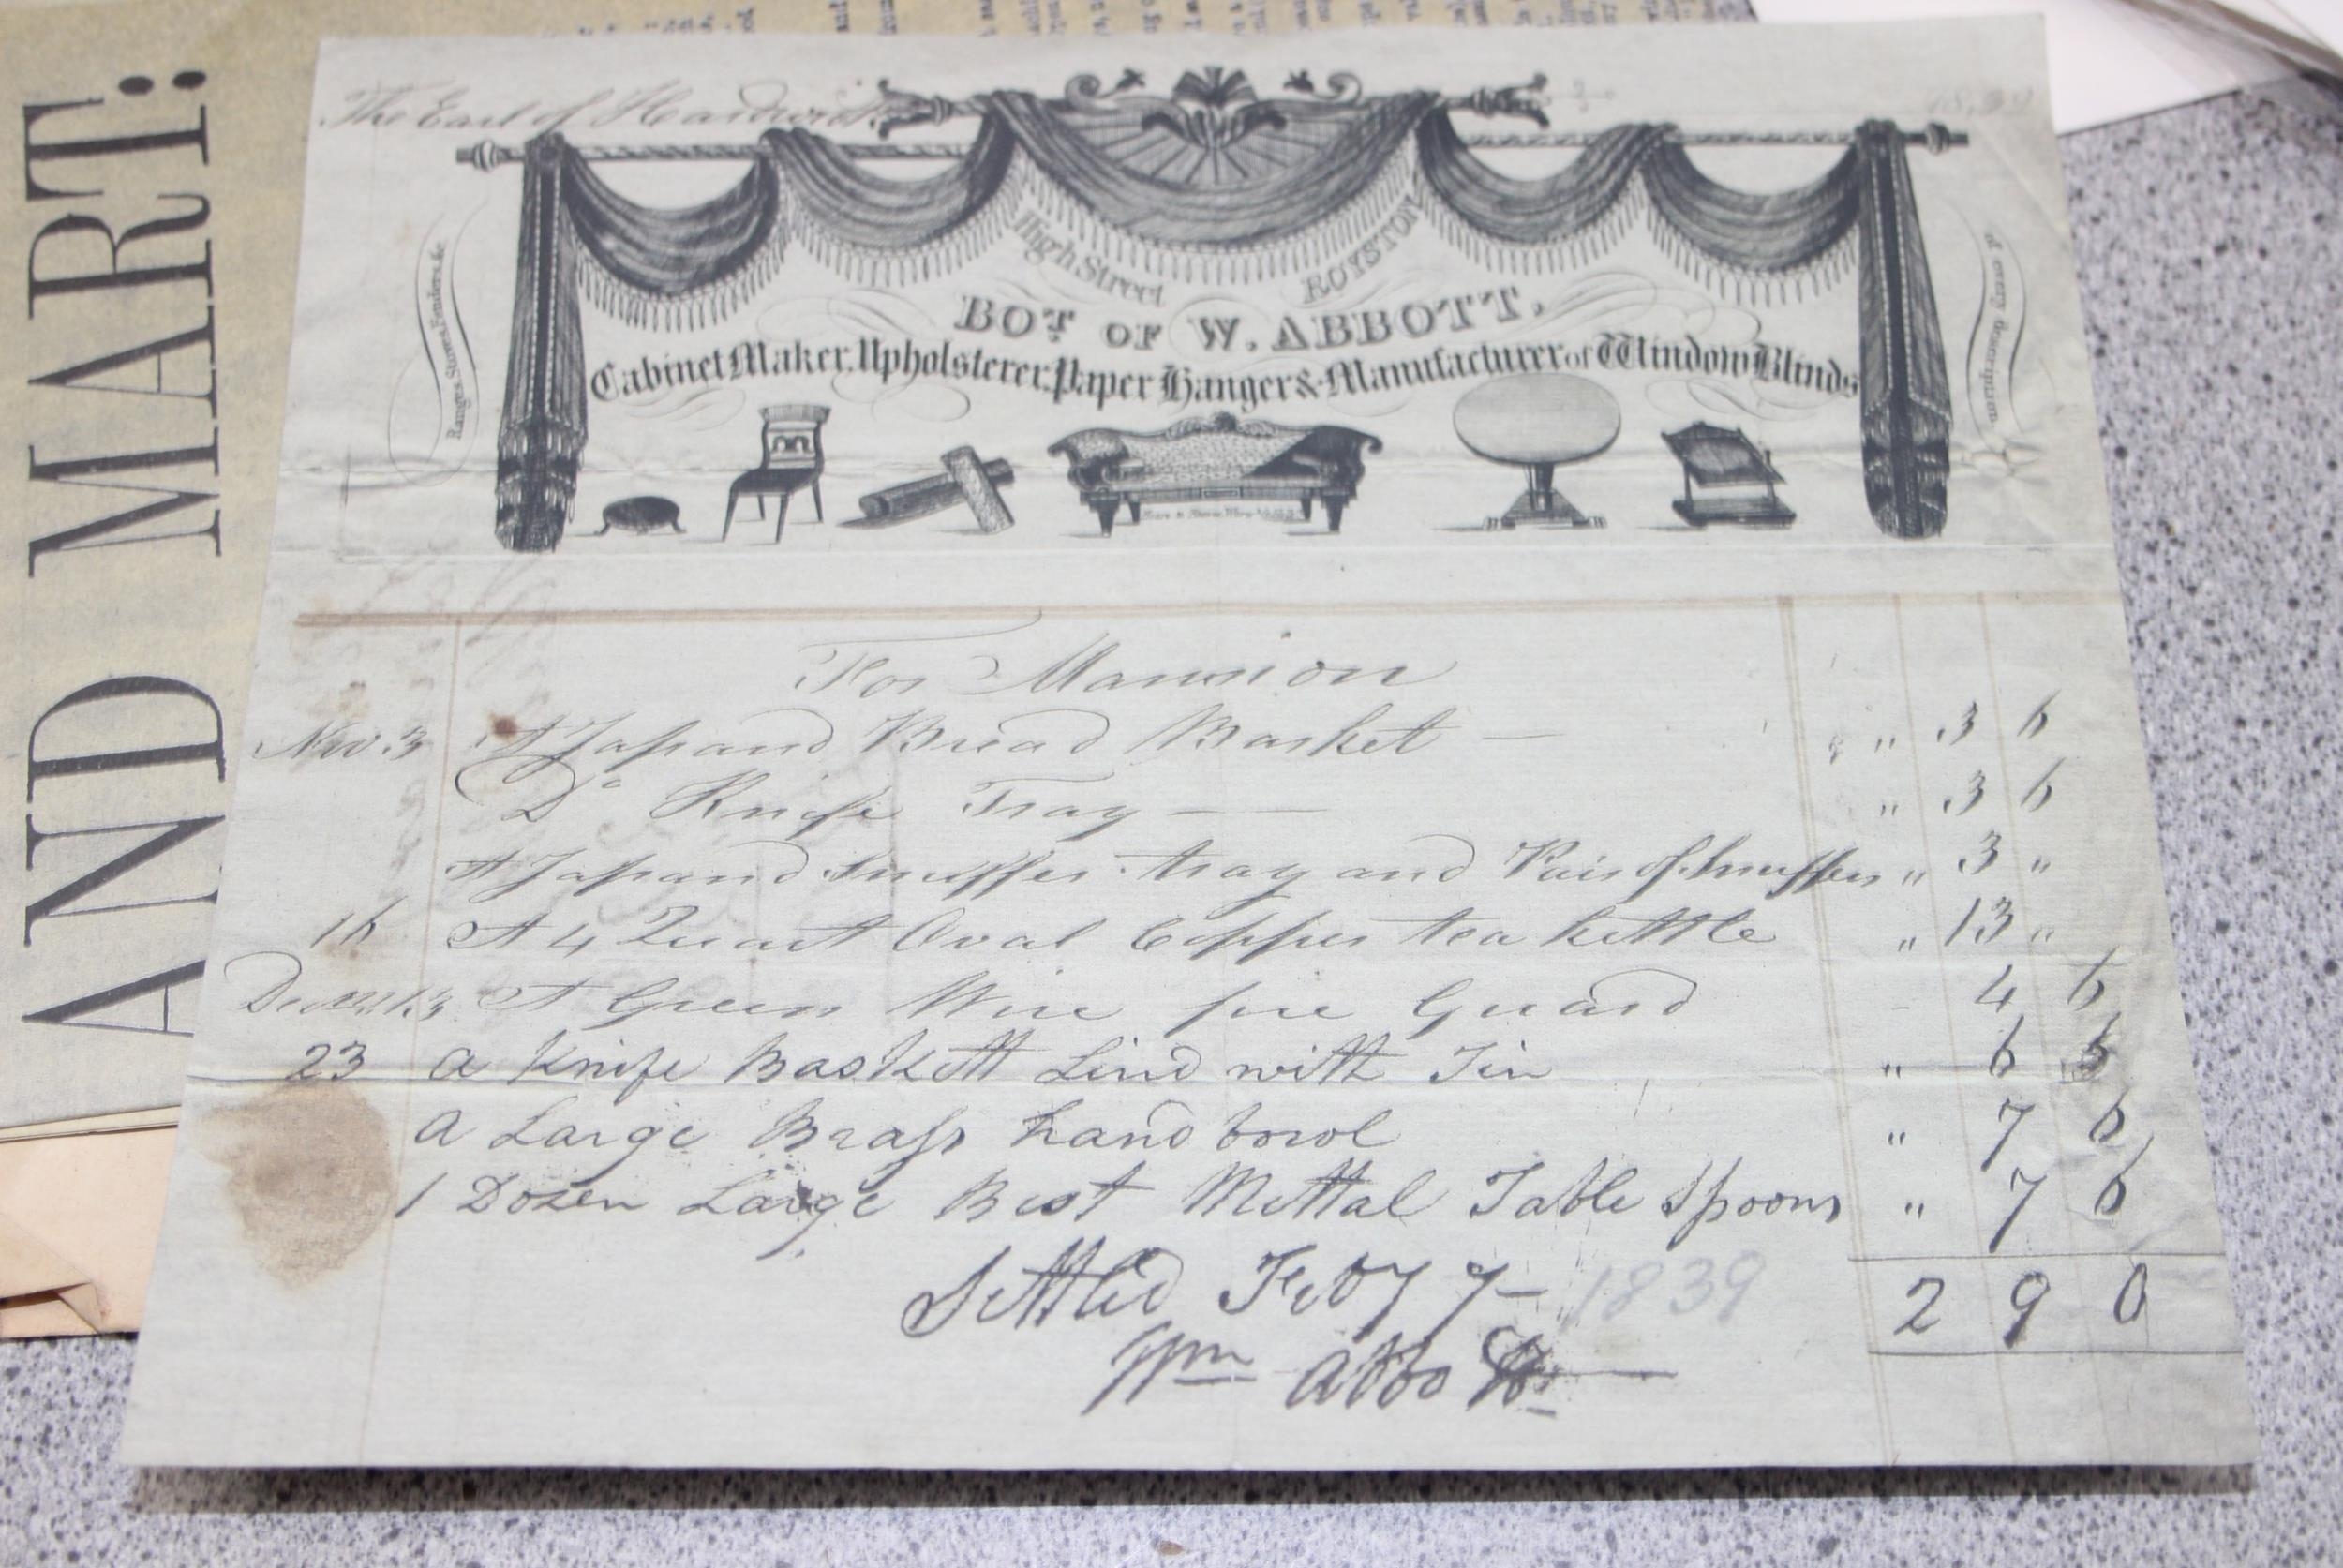 AND MART:
The Earl of Hardwicke
High Street ROYSTON
BOT. OF W. ABBOTT,
Cabinet Maker, Upholsterer, Paper Hanger & Manufacturer of Window Blinds
Ranges, Stoves, Fenders, &c
of every description
For Mansion
Nov. 3 A Japand Bread Basket — " 3 6
Do Knife Tray — — " 3 6
A Japand Snuffer tray and Pair of Snuffers " 3 "
16 A 4 Quart Oval Copper tea kettle " 13 "
13 A Green Wire fire Guard - 4 6
23 a Knife Baskett Lind with Tin " 6 6
a Large Brass hand bowl " 7 6
1 Dozen Large Best Mettal Table Spoons " 7 6
2 9 0
Settled Feby 7 1839
Wm Abbott